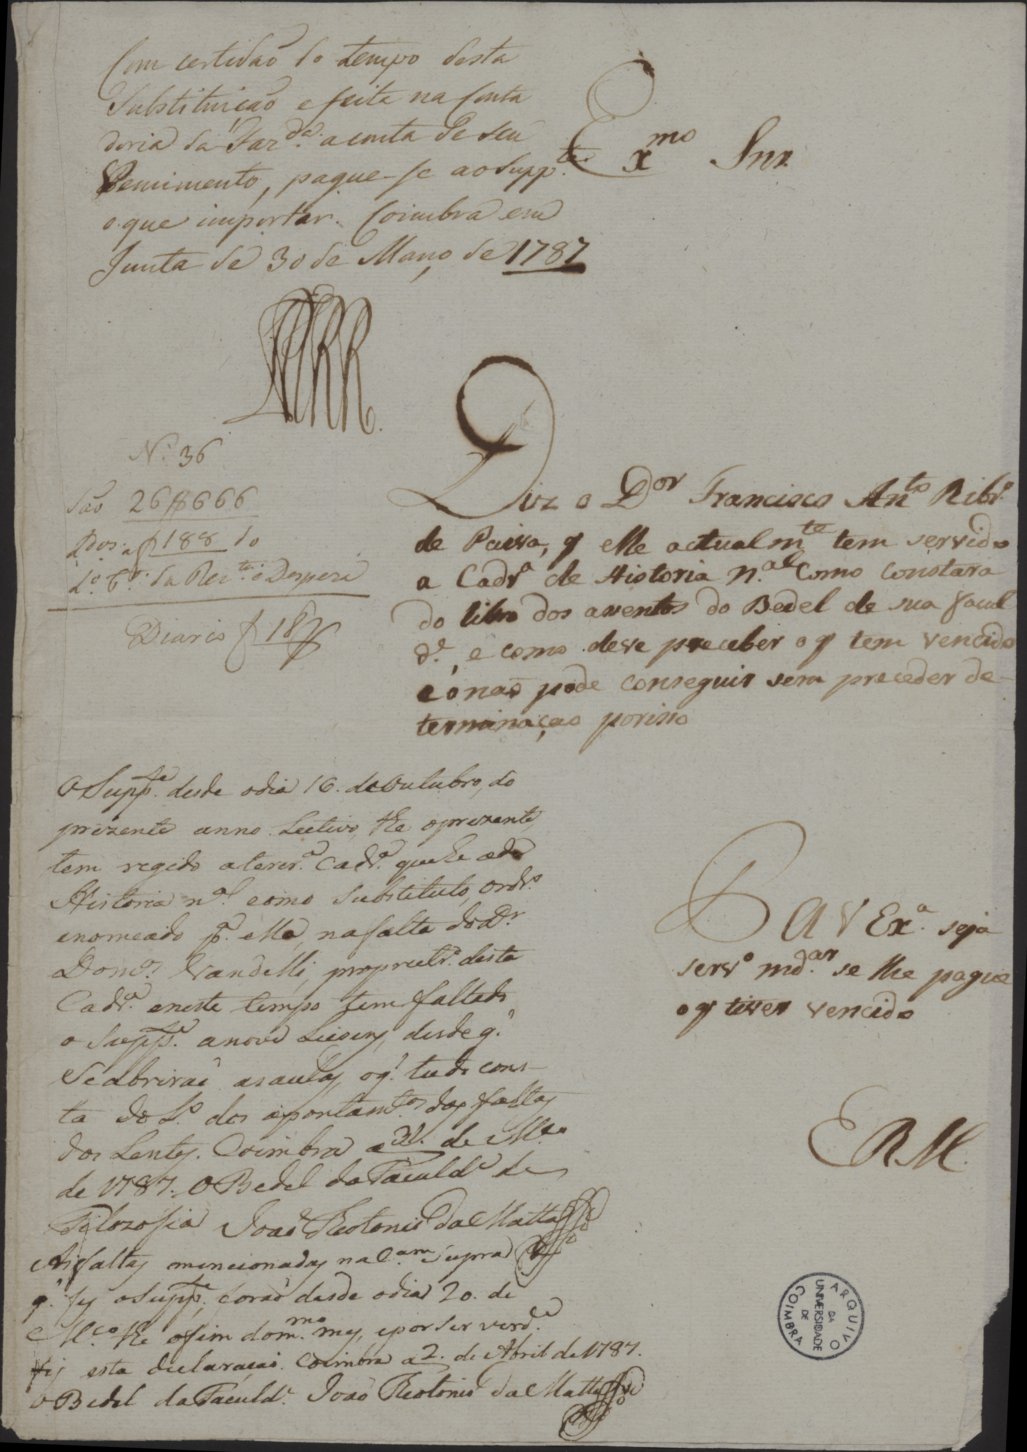 Com certidaõ do tempo desta
Substituiçaõ e feita na Conta
doria da Faz.da a conta de seu
Vencimento, pague-se ao Supp.te
o que importar. Coimbra em
Junta de 30 de Março de 1787
Exmo Snr
N.º 36
Saõ 26$666
188 do
L.º 6.º da Rec.ta e Despeza
Diario f 187
Diz o Dor Francisco Anto Ribr.o
de Paiva, q elle actualmte tem servido
a Cadr.a de Historia n.al como constara
do libro dos aventos do Bedel de sua facul
d.e, e como deve preceber o q tem vencido
e o naõ pode conseguir sem preceder de-
terminaçaõ porisso
O Supp.te desde o dia 16 de Outubro, do
prezente anno Lectivo, the o prezente,
tem regido a tercr.a Cadr.a que he a da
Historia n.al como Substituto, Ordr.o
e nomeado p.a ella, na falta do Dr
Dom.os Vandelli propriettr.o desta
Cadr.a e neste tempo tem faltado
o Supp.te a nove Liçoens, desde q.
se abriraõ as aulas, o q. tudo cons-
ta do L.o dos apontam.tos das faltas
dos Lentes. Coimbra a 31. de M.ço
de 1787. O Bedel da Faculd.e de
Filozofia Joaõ Theotonio da Matta
As faltas mencionadas na C.am Supra
q. fes o Supp.te, foraõ desde o dia 20. de
M.ço the o fim do m.mo mes, e por ser verd.e
fis esta declaraçaõ. Coimbra a 2. de Abril de 1787.
O Bedel da Faculd.e Joaõ Theotonio da Matta
P a V Ex.a seja
serv.o md.ar se lhe pague
o q tiver vencido
E R M.
ARQUIVO
DA
UNIVERSIDADE
DE
COIMBRA